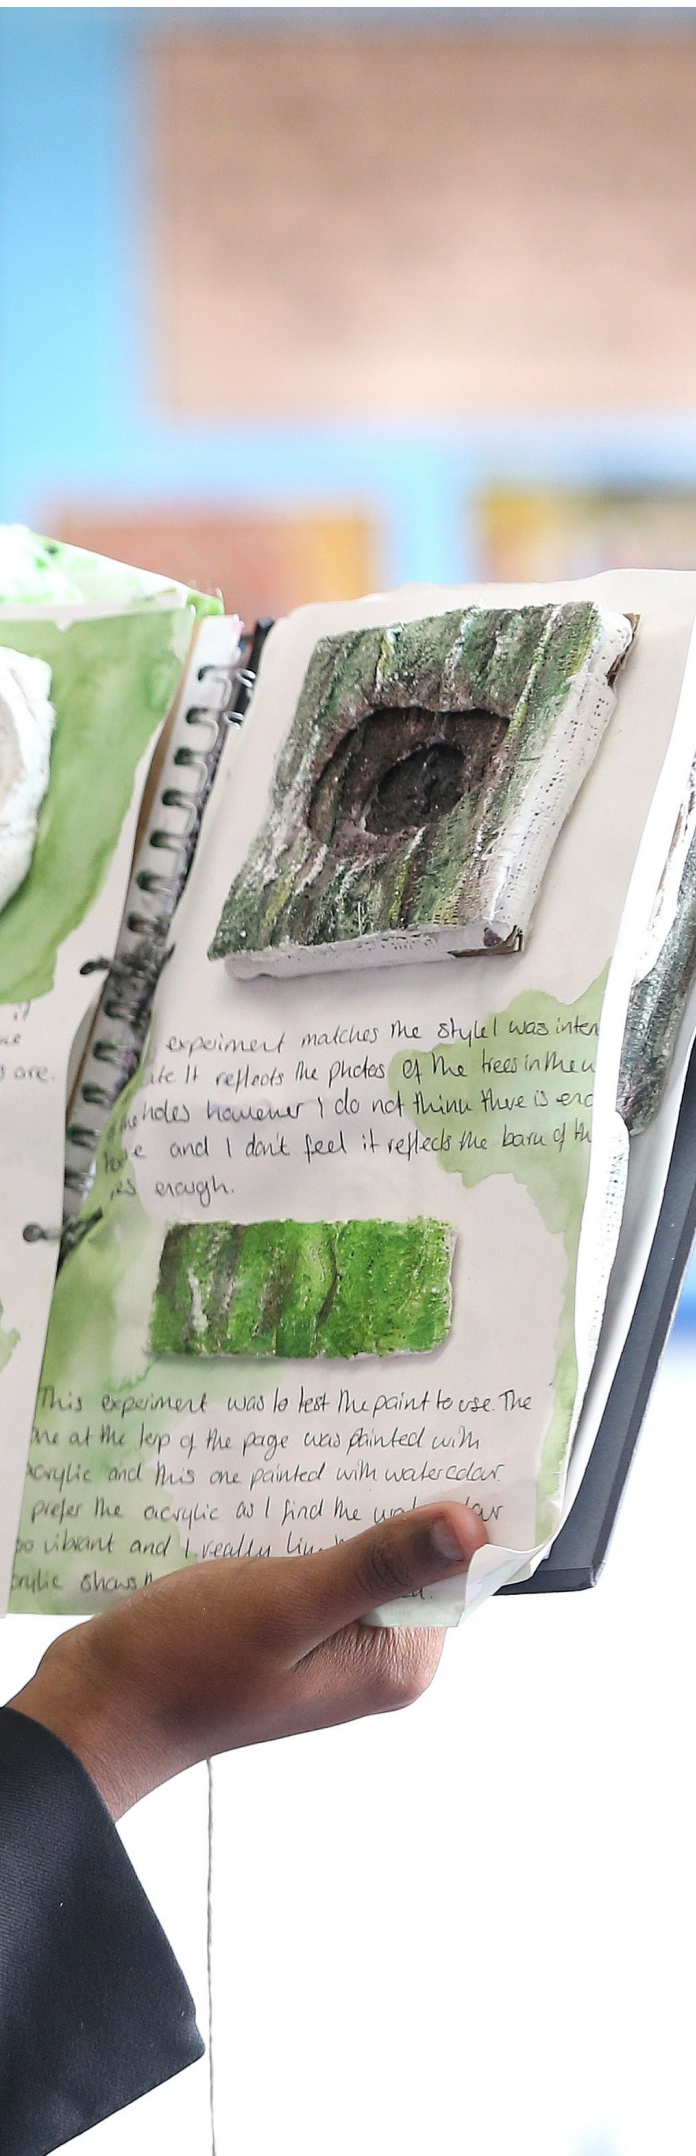 are.
experiment matches the style I was inten
It reflects the photos of the trees in the w
holes however I do not think there is eno
and I don't feel it reflects the bark of th
enough.
This experiment was to test the paint to use. The
one at the top of the page was painted with
acrylic and this one painted with watercolour.
prefer the acrylic as I find the
oo vibrant and I really
crylic shows